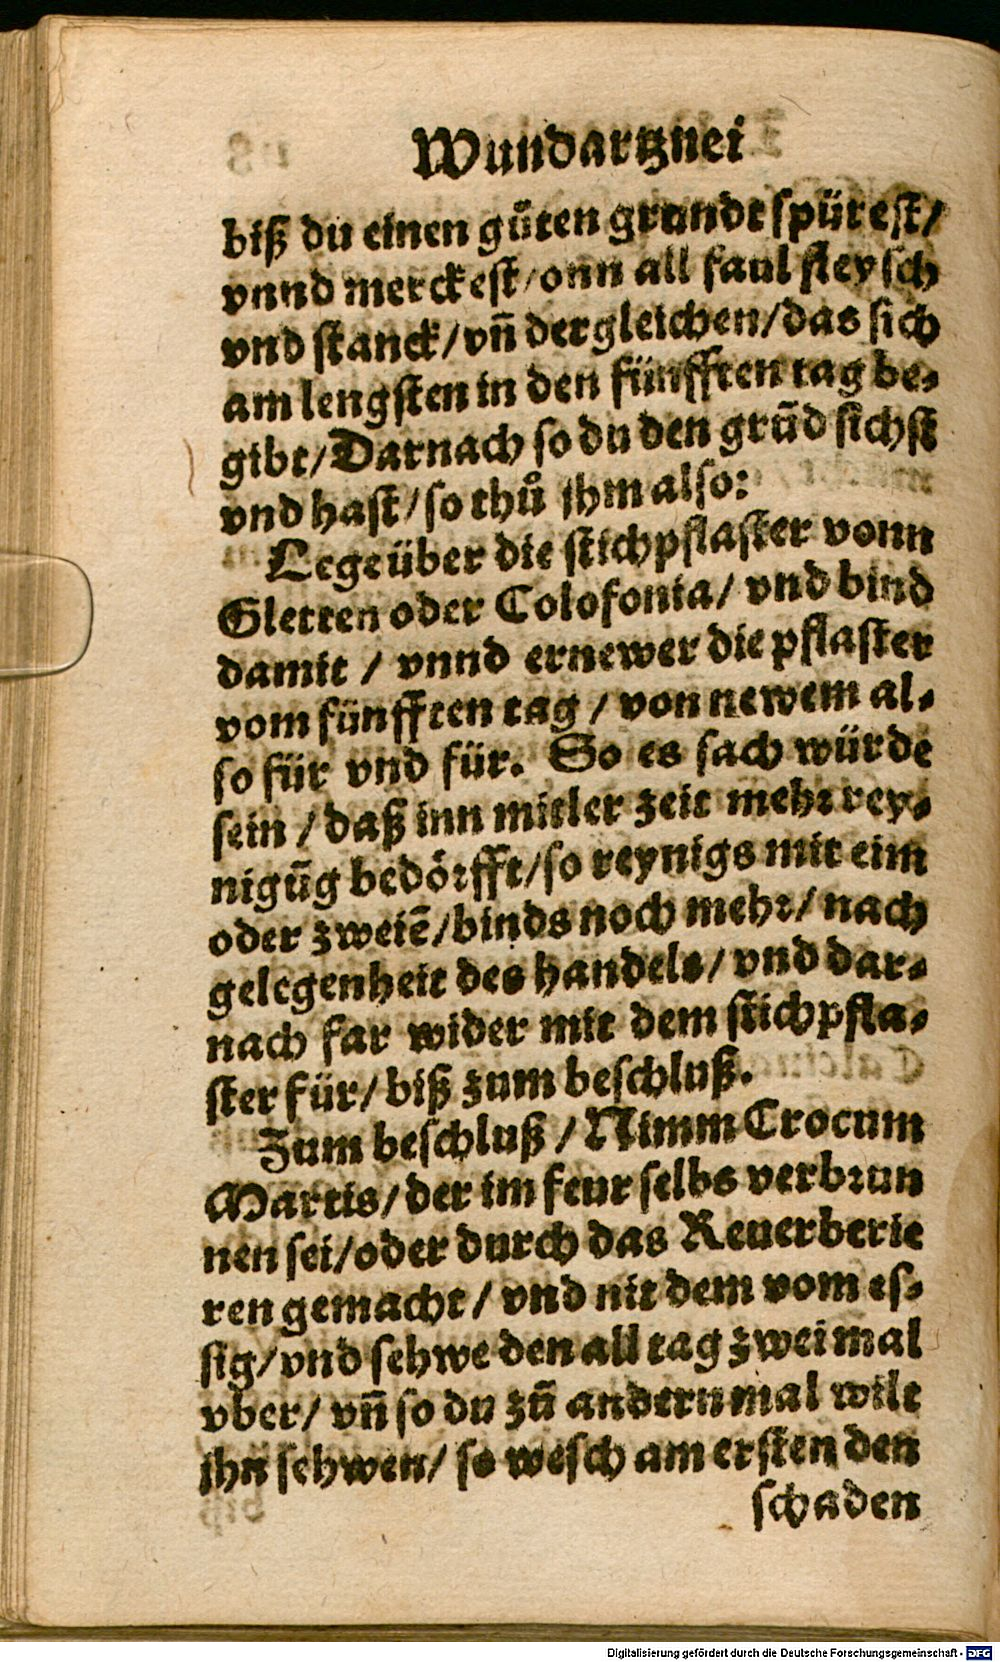 Wundartznei
biß du einen gůten grundt spürest/
vnnd merckest/onn all faul fleysch
vnd stanck/vñ dergleichen/das sich
am lengsten in den fünfften tag be-
gibt/Darnach so du den grũd sichst
vnd hast/so thů jhm also:
Lege über die stichpflaster vonn
Gletten oder Colofonia/ vnd bind
damit / vnnd ernewer die pflaster
vom fünfften tag / von newem al-
so für vnd für. So es sach würde
sein / daß inn mitler zeit mehr rey-
nigũg bedörfft/so reynigs mit eim
oder zweiẽ/binds noch mehr/ nach
gelegenheit des handels/ vnd dar-
nach far wider mit dem stichpfla-
ster für/ biß zum beschluß.
Zum beschluß / Nimm Crocum
Martis/ der im feur selbs verbrun
nen sei/oder durch das Reuerberie
ren gemacht/ vnd nit dem vom es-
sig/vnd sehwe den all tag zwei mal
vber/ vñ so du zũ andern mal wilt
jhn sehwen/ so wesch am ersten den
schaden
Digitalisierung gefördert durch die Deutsche Forschungsgemeinschaft - DFG